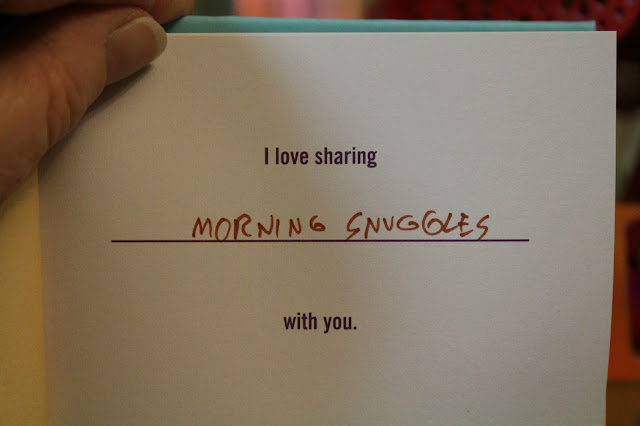 I love sharing
MORNING SNUGGLES
with you.